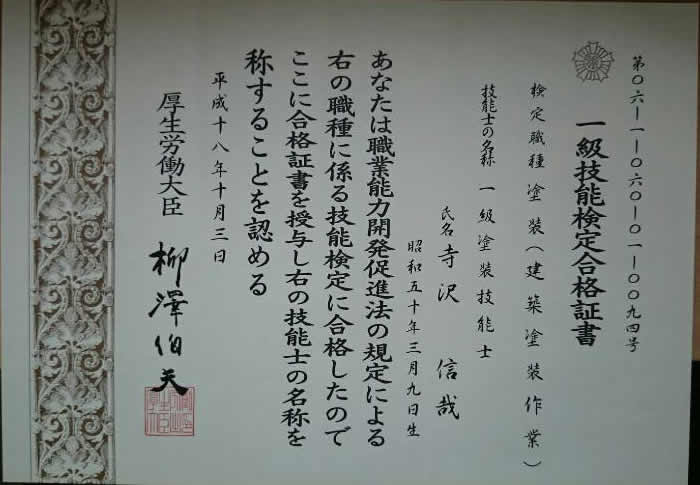 第〇六ー一ー〇六〇ー〇一ー〇〇九四号
一級技能検定合格証書
検定職種 塗装(建築塗装作業)
技能士の名称 一級塗装技能士
氏名 寺沢 信哉
昭和五十年三月九日生
あなたは職業能力開発促進法の規定による
右の職種に係る技能検定に合格したので
ここに合格証書を授与し右の技能士の名称を
称することを認める
平成十八年十月三日
厚生労働大臣 柳澤伯夫